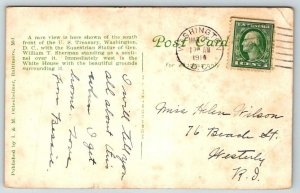 A rare view is here shown of the south
front of the U. S. Treasury, Washington,
D. C., with the Equestrian Statue of Gen.
William T. Sherman standing as a senti-
nel over it. Immediately west is the
White House with the beautiful grounds
surrounding it.
Post Card
WASHINGTON
1914
D.C.
Published by I. & M. Ottenheimer, Baltimore, Md.
I will tell you
all about this
when I get
home. Love
from Bessie.
Miss Helen Wilson
76 Beach St.
Westerly
R.I.